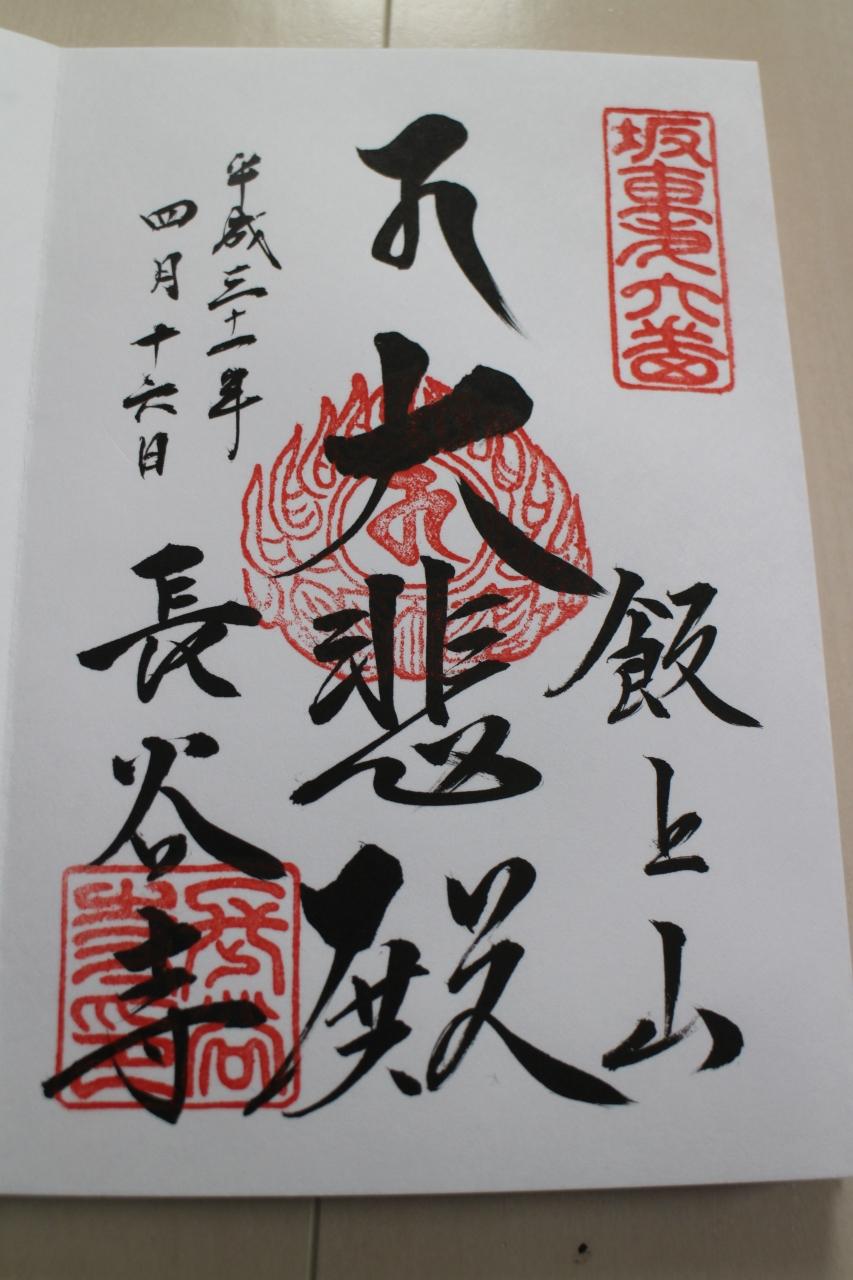 坂東第六番
飯上山
大悲殿
平成三十一年
四月十六日
長谷寺